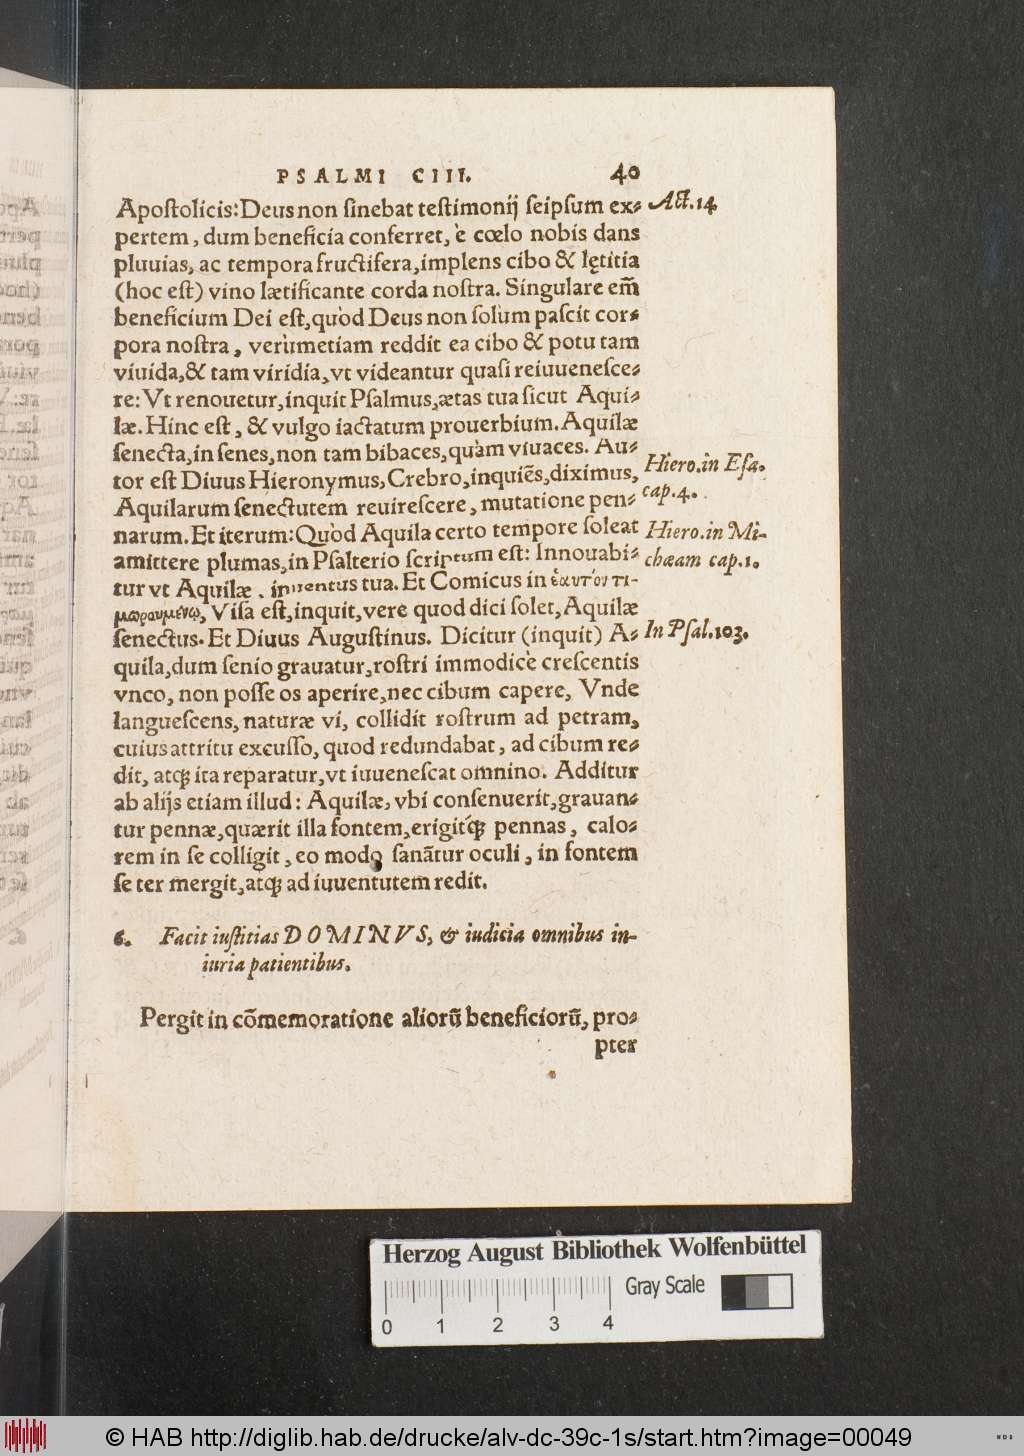 PSALMI CIII. 40
Apostolicis: Deus non sinebat testimonij seipsum ex- Act.14
pertem, dum beneficia conferret, è cœlo nobis dans
pluuias, ac tempora fructifera, implens cibo & lętitia
(hoc est) vino lætificante corda nostra. Singulare em̃
beneficium Dei est, quòd Deus non solùm pascit cor-
pora nostra, verùmetiam reddit ea cibo & potu tam
viuida, & tam viridia, vt videantur quasi reiuuenesce-
re: Vt renouetur, inquit Psalmus, ætas tua sicut Aqui-
læ. Hinc est, & vulgo iactatum prouerbium. Aquilæ
senecta, in senes, non tam bibaces, quàm viuaces. Au-
tor est Diuus Hieronymus, Crebro, inquiẽs, diximus, Hiero.in Esa.
Aquilarum senectutem reuirescere, mutatione pen- cap.4.
narum. Et iterum: Quòd Aquila certo tempore soleat Hiero.in Mi-
amittere plumas, in Psalterio scriptum est: Innouabi- chæam cap.1.
tur vt Aquilæ, iuuentus tua. Et Comicus in ἑαυτὸν τι-
μωρουμένῳ, Visa est, inquit, vere quod dici solet, Aquilæ
senectus. Et Diuus Augustinus. Dicitur (inquit) A- In Psal.103.
quila, dum senio grauatur, rostri immodicè crescentis
vnco, non posse os aperire, nec cibum capere, Vnde
languescens, naturæ vi, collidit rostrum ad petram,
cuius attritu excusso, quod redundabat, ad cibum re-
dit, atq; ita reparatur, vt iuuenescat omnino. Additur
ab alijs etiam illud: Aquilæ, vbi consenuerit, grauan-
tur pennæ, quærit illa fontem, erigitq́; pennas, calo-
rem in se colligit, eo modo sanãtur oculi, in fontem
se ter mergit, atq; ad iuuentutem redit.
6. Facit iustitias DOMINVS, & iudicia omnibus in-
iuria patientibus.
Pergit in cõmemoratione aliorũ beneficiorũ, pro-
pter
Herzog August Bibliothek Wolfenbüttel
Gray Scale
0 1 2 3 4
© HAB http://diglib.hab.de/drucke/alv-dc-39c-1s/start.htm?image=00049